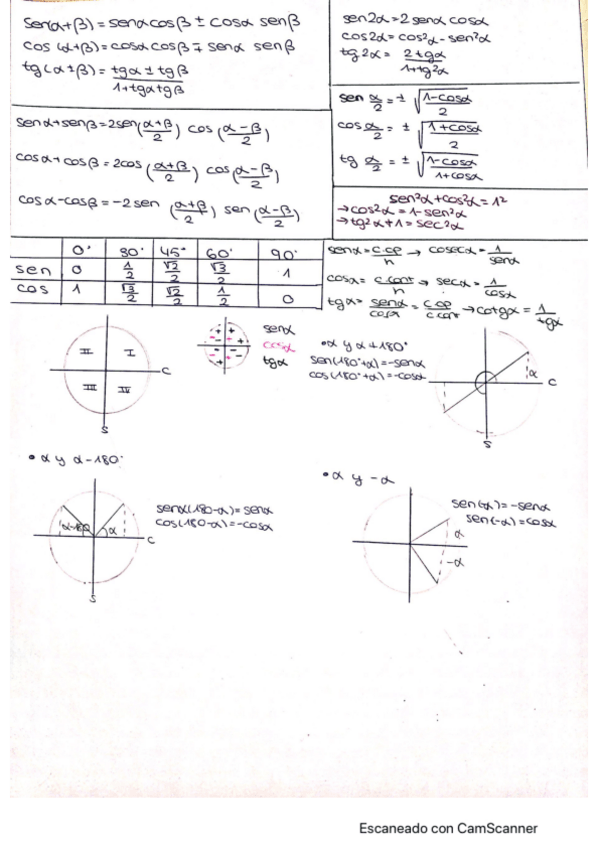 sen(α+β)=senαcosβ ± cosα senβ
cos (α+β)=cosαcosβ ∓ senα senβ
tg(α±β)= tgα ± tgβ / 1+tgαtgβ
sen2α=2 senα cosα
cos2α=cos²α-senα²α
tg2α= 2tgα / 1+tg²α
sen α/2 = ± √(1-cosα / 2)
cos α/2 = ± √(1+cosα / 2)
tg α/2 = ± √(1-cosα / 1+cosα)
senα+senβ=2sen(α+β / 2) cos (α-β / 2)
cosα+cosβ=2cos (α+β / 2) cos(α-β / 2)
cosα-cosβ=-2sen (α+β / 2) sen(α-β / 2)
sen²α+cos²α=1²
→cos²α=1-sen²α
→tg²α+1=sec²α
0° 30° 45° 60° 90°
sen 0 1/2 √2/2 √3/2 1
cos 1 √3/2 √2/2 1/2 0
senα= c.op / h → cosecα= 1 / senα
cosα= c.cont / h → secα= 1 / cosα
tgα= senα / cosα = c.op / c.cont → cotgα = 1 / tgα
II I
III IV
C
S
+ + - - - + - + - + + -
senα
cosα
tgα
• α y α+180°
sen(180°+α)=-senα
cos(180°+α)=-cosα
α
C
S
• α y α-180°
senα(180-α)=senα
cos(180-α)=-cosα
α-180 α
C
S
• α y -α
sen(-α)=-senα
sen(-α)=cosα
α
-α
Escaneado con CamScanner